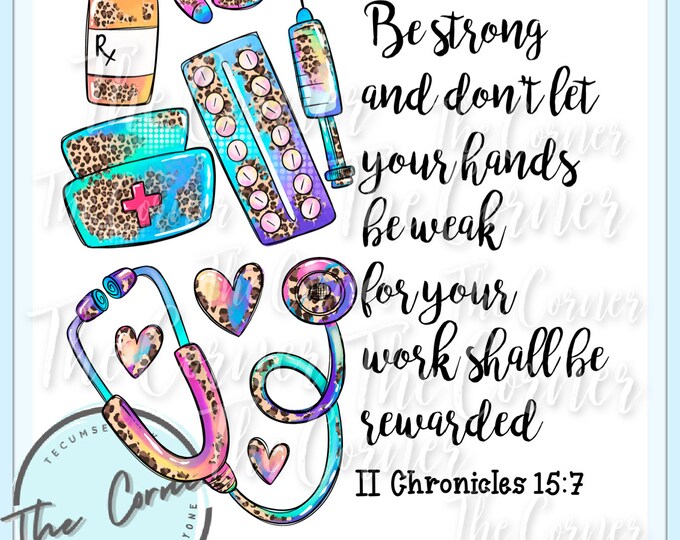 Rx
Be strong
and don't let
your hands
be weak
for your
work shall be
rewarded
II Chronicles 15:7
TECUMSE
The Corner
YONE
The Corner
The Corner
The Corner
The Corner
The Corner
The Corner